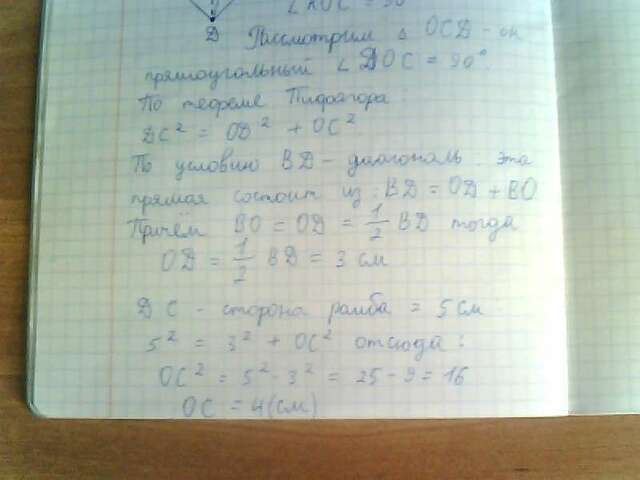 ∠AOC = 90
D Рассмотрим △ OCD - он
прямоугольный ∠DOC = 90°.
По теореме Пифагора:
DC² = OD² + OC²
По условию BD - диагональ. эта
прямая состоит из: BD = OD + BO
Причём BO = OD = 1/2 BD тогда
OD = 1/2 BD = 3 см
DC - сторона ромба = 5 см
5² = 3² + OC² отсюда:
OC² = 5² - 3² = 25 - 9 = 16
OC = 4(см)